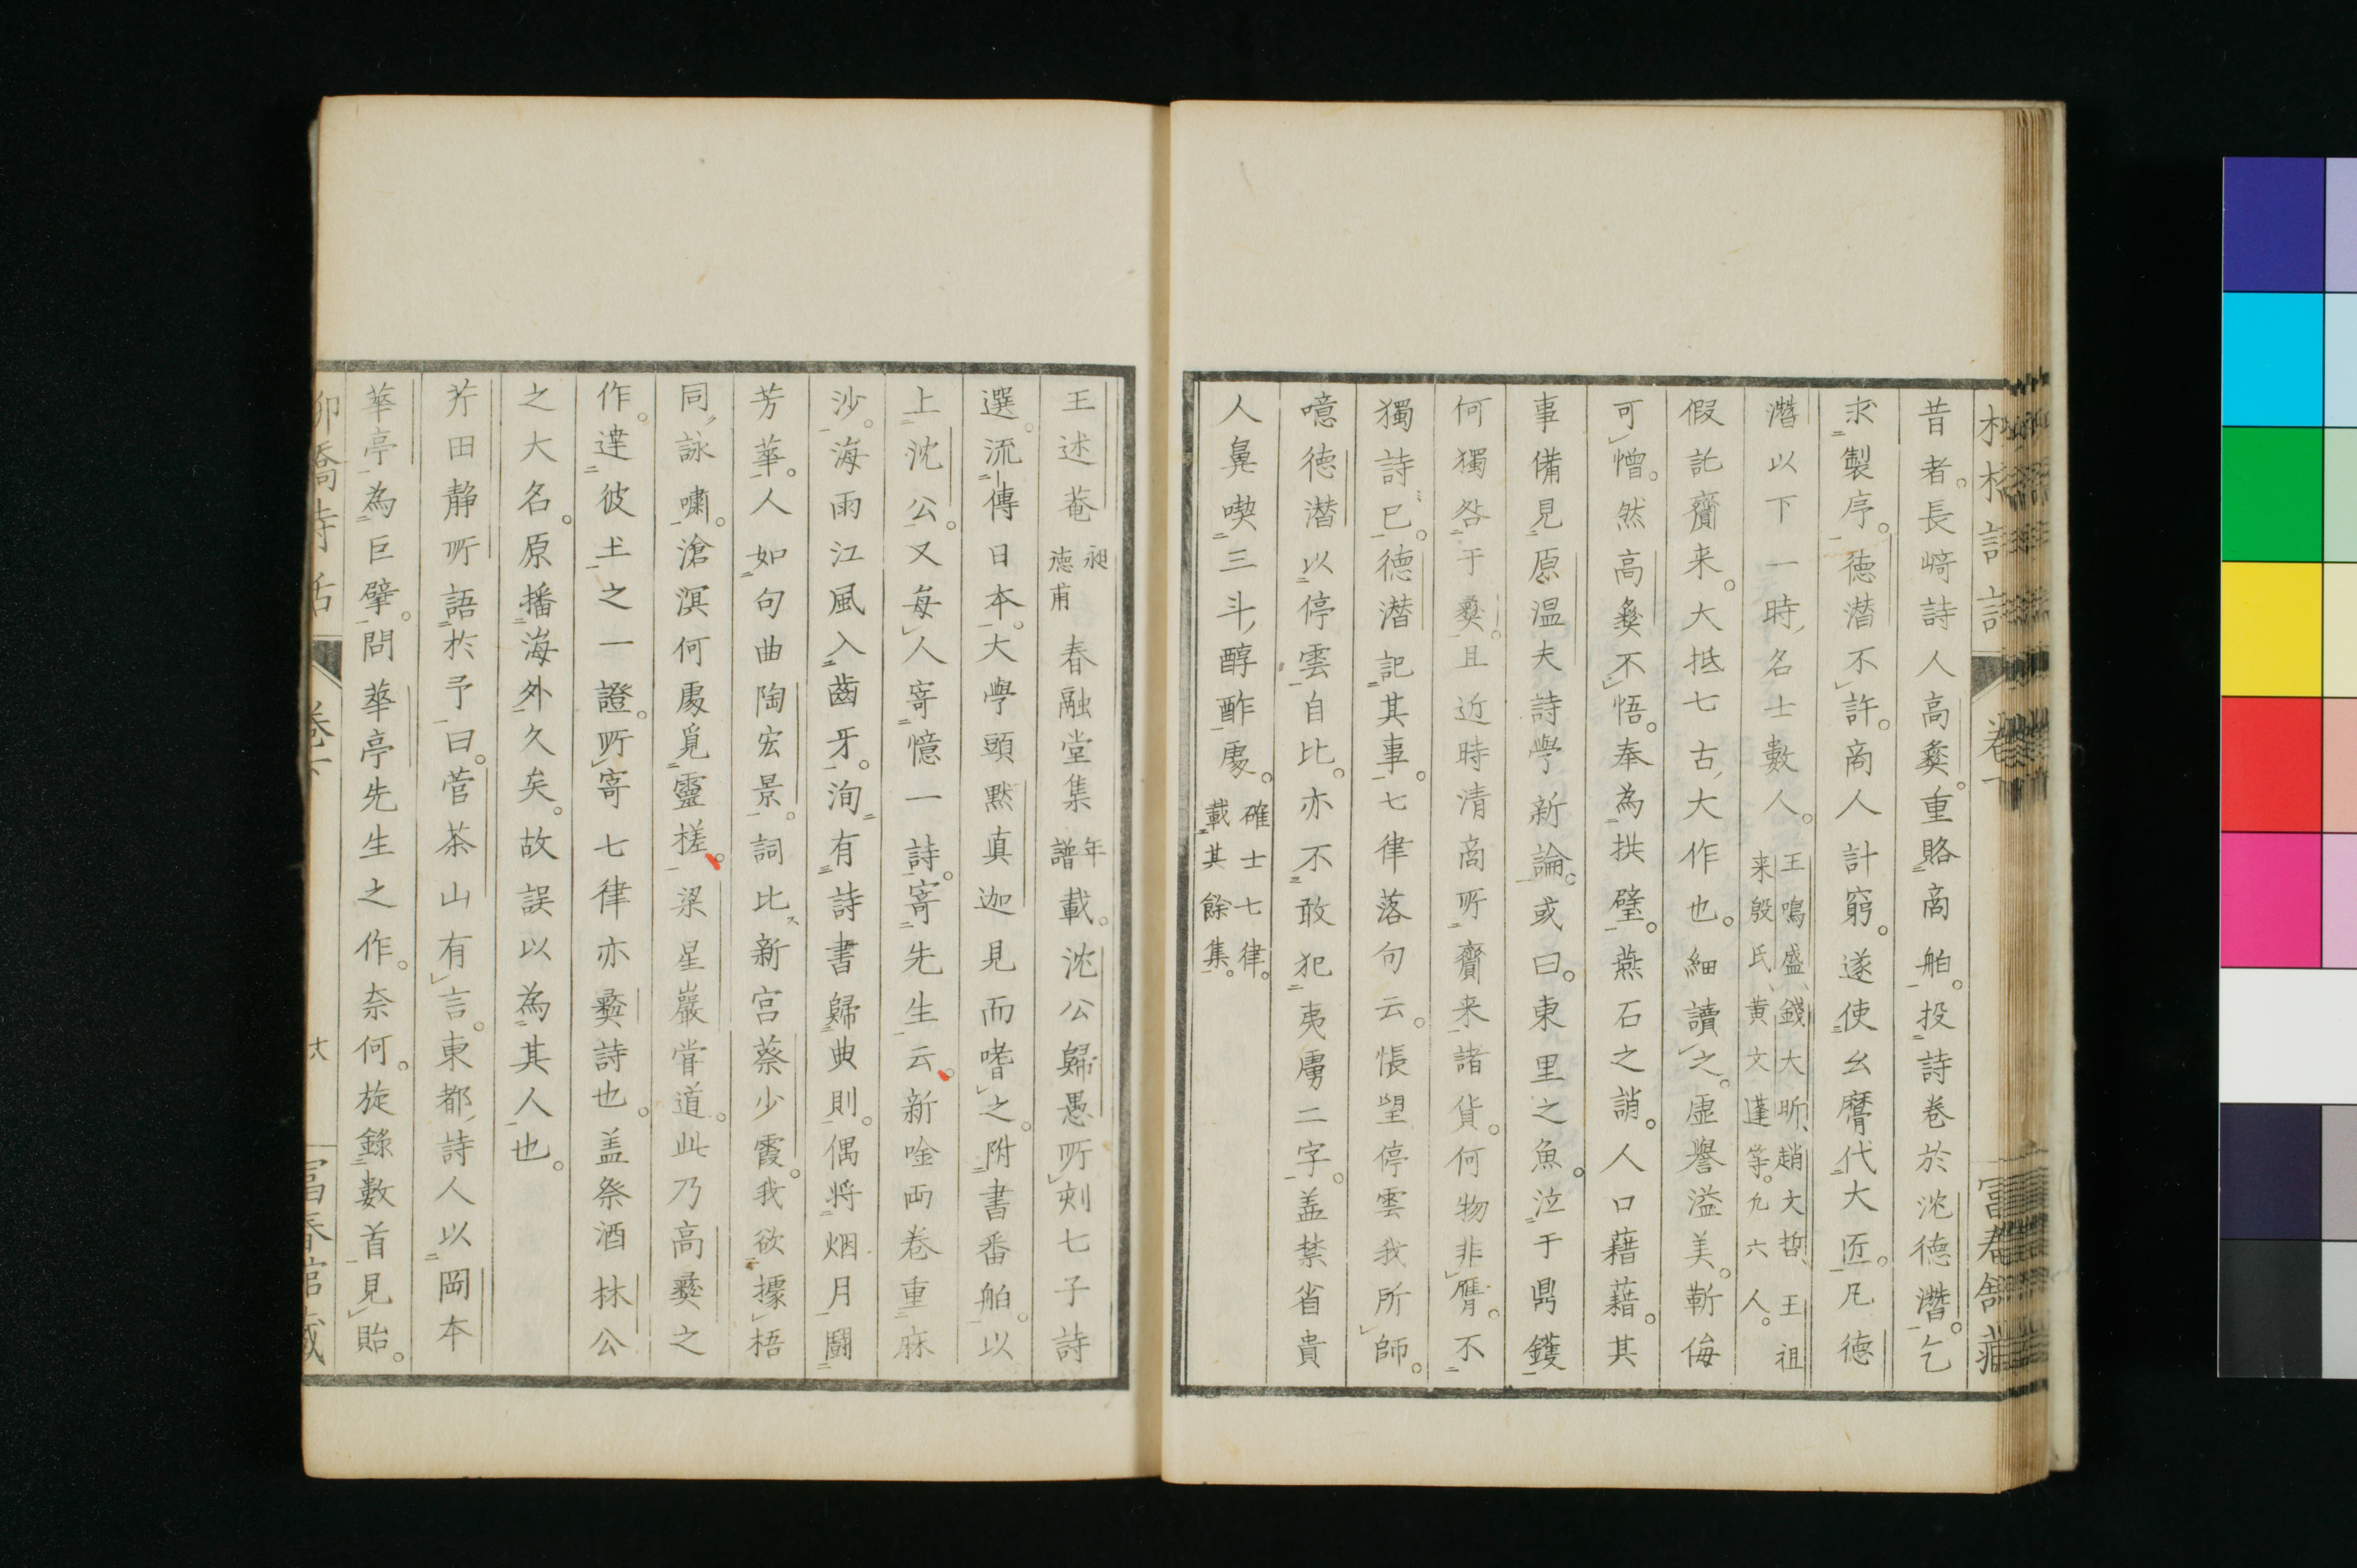 昔者。長﨑詩人高彜。重賂商舶。投詩巻於沈德潛。乞
求製序。德潜不許。商人計窮。遂使幺麿代大匠。凡德
潛以下一時名士數人。王鳴盛、錢大昕、趙文哲、王祖
来殷氏、黄文蓮等。九六人。
假託齎来。大抵七古大作也。細讀之。虚譽溢美。斬侮
可憎。然高彜不悟。奉為拱璧。燕石之誚。人口藉藉。其
事備見原温夫詩學新論。或曰。東里之魚。泣于鼎鑊
何獨咎于彜。且近時清商所齎来諸貨。何物非贋。不
獨詩已。德潜記其事。七律落句云。悵望停雲我所師。
噫德潜以停雲自比。亦不敢犯夷虜二字。盖禁省貴
人鼻喫三斗醇酢處。確士七律。
載其餘集。
巻下
王述菴昶
德甫春融堂集年
譜載。沈公歸愚所刻七子詩
選。流傳日本。大學頭默真迦見而嗜之。附書番舶。以
上沈公。又每人寄憶一詩。寄先生云。新唫兩卷重麻
沙。海雨江風入齒牙。洵有詩書歸典則。偶將烟月鬪
芳華。人如句曲陶宏景。詞比新宮蔡少霞。我欲據梧
同詠嘯。滄溟何處覓靈槎。梁星巖嘗道。此乃高彜之
作。達彼土之一證。所寄七律亦彜詩也。盖祭酒林公
之大名。原播海外久矣。故誤以為其人也。
芥田静所語於予曰。菅茶山有言。東都詩人以岡本
華亭為巨擘。問華亭先生之作。奈何。旋錄數首見貽。
柳橋詩話
卷下
富春館藏